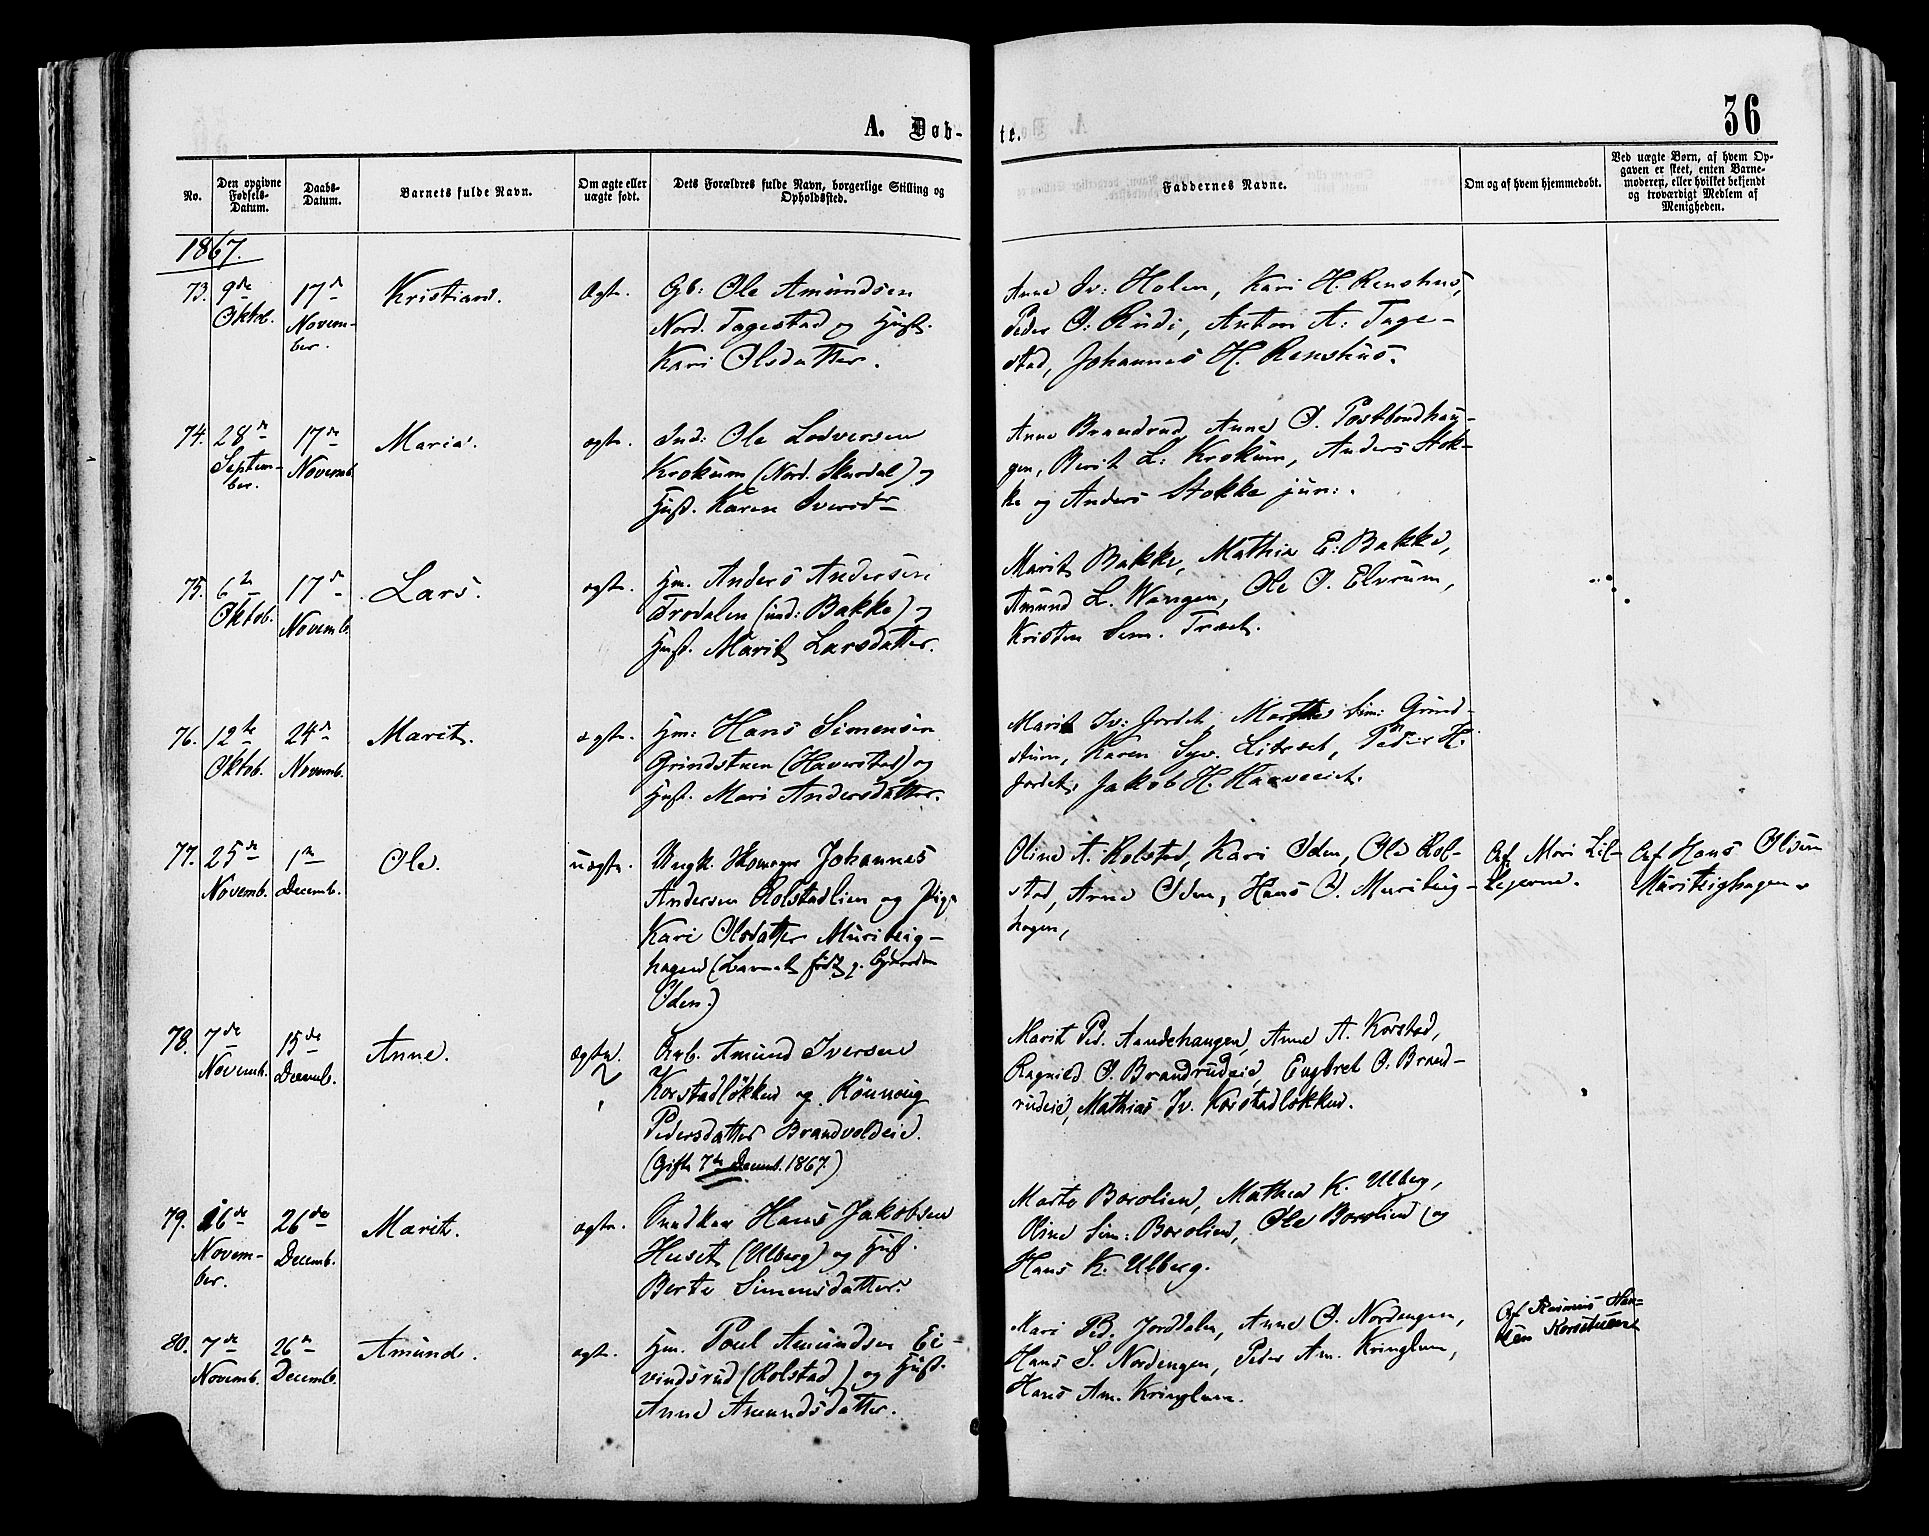 A. Døb-
te.
36
No.
Den opgivne Fødsels-Datum.
Daabs-Datum.
Barnets fulde Navn.
Om ægte eller uægte født.
Dets Forældres fulde Navn, borgerlige Stilling og Opholdssted.
Faddernes Navne.
Om og af hvem hjemmedøbt.
Ved uægte Børn, af hvem Op-
gaven er skeet, enten Barne-
moderen, eller hvilket bekjendt
og troværdigt Medlem af
Menigheden.
1867.
73. 9de Oktob. 17de Novem-
ber.
Kristian.
ægte.
Gb: Ole Amundsen
Nord. Tagestad og Hust.
Kari Olsdatter.
Anne Iv: Holen, Kari H. Renshus,
Peder O: Rudi, Anton A: Tage-
stad, Johannes H. Renshus.
74. 28de Septem-
ber. 17de Novemb.
Maria.
ægte.
Ind: Ole Lodversen
Krokum (Nord. Skurdal) og
Hust. Karen Iversdtr
Anne Brandrud, Anne O. Postbondhau-
gen, Berit L: Krokum, Anders Stok-
ke og Anders Stokke jun:.
75. 6te Oktob. 17de Novemb.
Lars.
ægte.
Hm. Anders Andersen
Trodalen (ind: Bakke) og
Hust. Marit Larsdatter.
Marit Bakke, Mathia E: Bakke,
Amund L. Wangen, Ole O. Elvrum,
Kristen Sim. Træet.
76. 12te Oktob. 24de Novemb.
Marit.
ægte.
Hm: Hans Simensen
Grindstuen (Haverstad) og
Hust. Mari Andersdatter.
Marit Iv: Jordet, Marthe Sim: Grind-
stuen, Karen Syv. Peder H.
Jordet, Jakob H.
77. 25de Novemb. 1ste Decemb.
Ole.
uægte.
Ungk. Johannes
Andersen Rolstadlien og Pige
Kari Olsdatter Muriteig-
hagen (Barnet født p.
Oden.)
Oline A. Rolstad, Kari Oden, Ole Rol-
stad, Anne Oden, Hans O. Muriteig-
hagen,
Af Mari Lil-
legjerne.
Af Hans Olsen
Muriteighagen.
78. 7de Novemb. 15de Decemb.
Anne.
ægte.
Arb. Amund Iversen
Korstadløkken og Rønnoug
Pedersdatter Brandvoldeie.
(Gifte 7de Decemb. 1867)
Marit Ped. Aandehaugen, Anne A. Korstad,
Ragnild O. Brandrudeie, Engbret O. Brand-
rudeie, Mathias Iv. Korstadløkken.
79. 16de Novem-
ber. 26de Decemb.
Marit.
ægte.
Snedker Hans Jakobsen
Huset (Ulberg) og Hust.
Berte Simensdatter.
Marte Borolien, Mathea K. Ulberg,
Oline Sim: Borolien, Ole Borolien og
Hans K. Ulberg.
80. 7de Novemb. 26de Decemb.
Amund.
ægte.
Hm. Poul Amundsen Ei-
vindsrud (Rolstad) og Hust.
Anne Amundsdatter.
Mari Pd. Jorddalen, Anne O. Nordengen,
Hans S. Nordengen, Peder Am. Kringlum,
Hans Am. Kringlum.
Af Rasmus Han-
sen Korsstuen